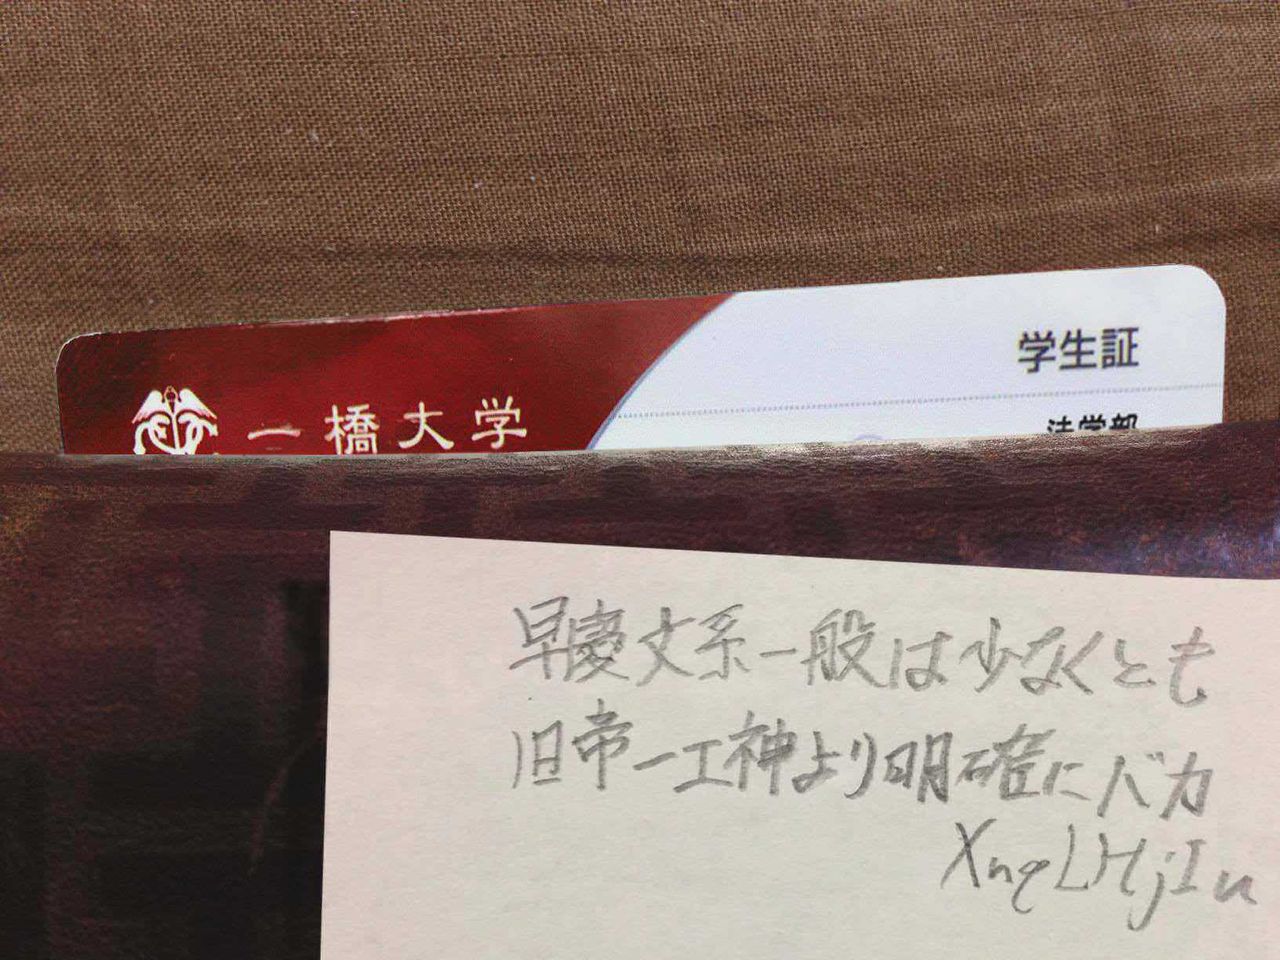 学生証
一橋大学
法学部
早慶文系一般は少なくとも
旧帝一工神より明確にバカ
XnqLHjIu